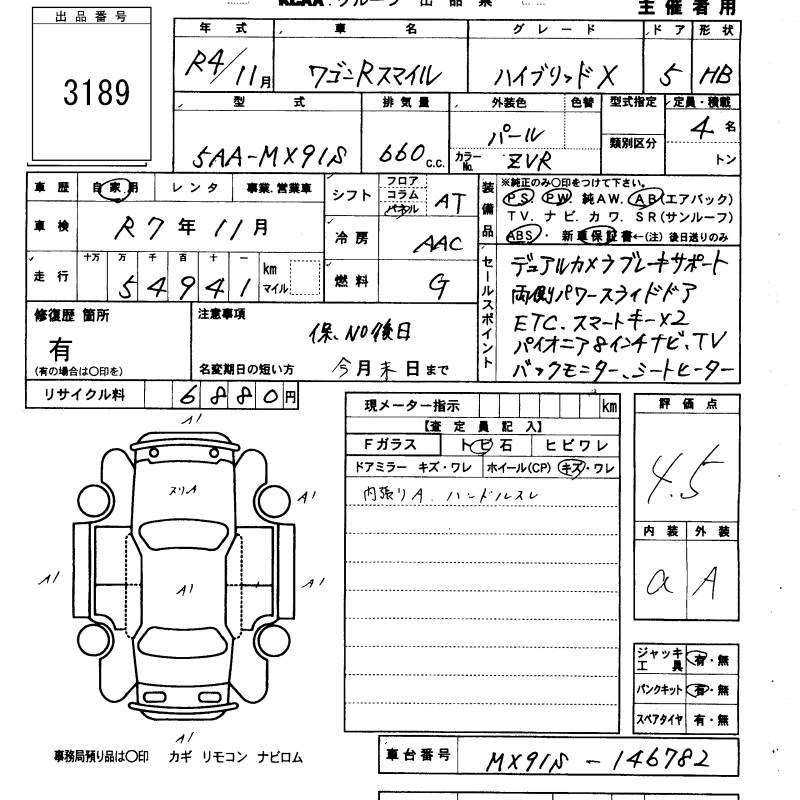 出品番号
3189
主催者用
年式 車名 グレード ドア 形状
R4/11月 ワゴンRスマイル ハイブリッドX 5 HB
型式 排気量 外装色 色替 型式指定 定員・積載
5AA-MX91S 660 c.c. パール 4名
カラーNo. ZVR 類別区分 トン
車歴 自家用 レンタ 事業.営業車
車検 R7年11月
走行 十万 万 千 百 十 一
54941 km マイル
シフト フロア コラム パネル AT
冷房 AAC
燃料 G
装備品 ※純正のみ〇印をつけて下さい。
PS PW 純AW. AB(エアバック)
TV. ナビ. カワ. SR(サンルーフ)
ABS・ 新車保証書←(注) 後日送りのみ
セールスポイント
デュアルカメラブレーキサポート
両側パワースライドドア
ETC.スマートキーX2
パイオニア8インチナビ、TV
バックモニター、シートヒーター
修復歴 箇所
有
(有の場合は〇印を)
注意事項
保、NO後日
名変期日の短い方 今月末日まで
リサイクル料 6880円
現メーター指示 km
【査定員記入】
Fガラス トビ石 ヒビワレ
ドアミラー キズ・ワレ ホイール(CP) キズ・ワレ
内張りA. ハンドルスレ
評価点
4.5
内装 外装
a A
ジャッキ工具 有・無
パンクキット 有・無
スペアタイヤ 有・無
A1
ヌリA
A1
A1
A1
A1
A1
事務局預り品は〇印 カギ リモコン ナビロム
車台番号 MX91S-146782